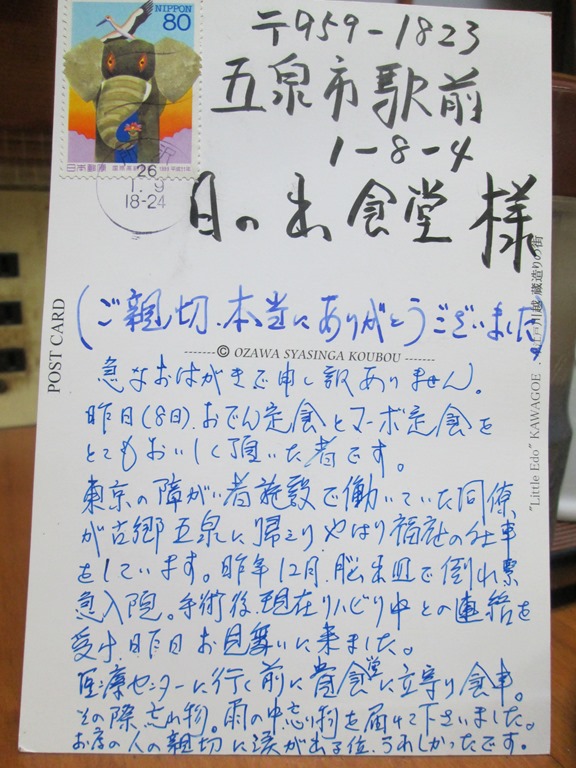 NIPPON
80
日本郵便
26
1.9
18-24
〒959-1823
五泉市駅前
1-8-4
日の出食堂様
POST CARD
(ご親切、本当にありがとうございました)。
© OZAWA SYASINGA KOUBOU
急なおはがきで申し訳ありません。
昨日(8日)、おでん定食とマーボ定食を
とてもおいしく頂いた者です。
東京の障がい者施設で働いていた同僚
が古郷五泉に帰えり、やはり福祉の仕事
をしています。昨年12月、脳末血で倒れ緊
急入院。手術後、現在リハビリ中との連絡を
受け、昨日お見舞いに来ました。
医療センターに行く前に貴食堂に立寄り食事。
その際忘れ物。雨の中忘れ物を届けて下さいました。
お店の人の親切に涙が出る位、うれしかったです。
"Little Edo" KAWAGOE
川越・蔵造りの街